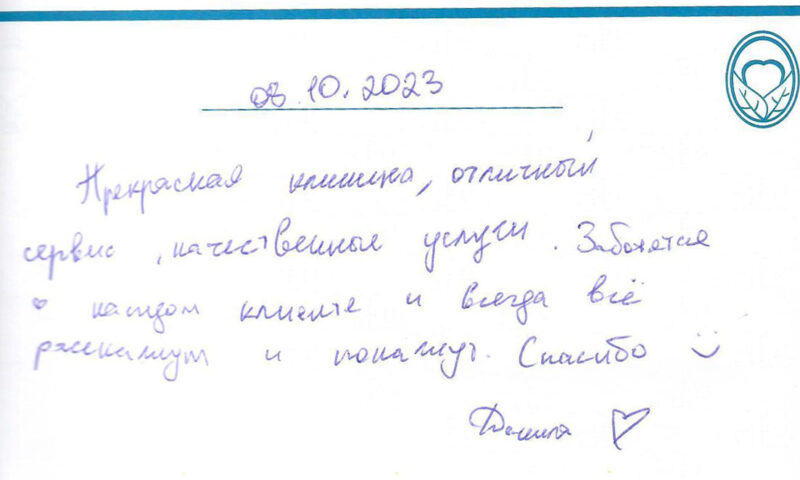 03.10.2023
Прекрасная клиника, отличный
сервис, качественные услуги. Заботятся
о каждом клиенте и всегда всё
расскажут и покажут. Спасибо